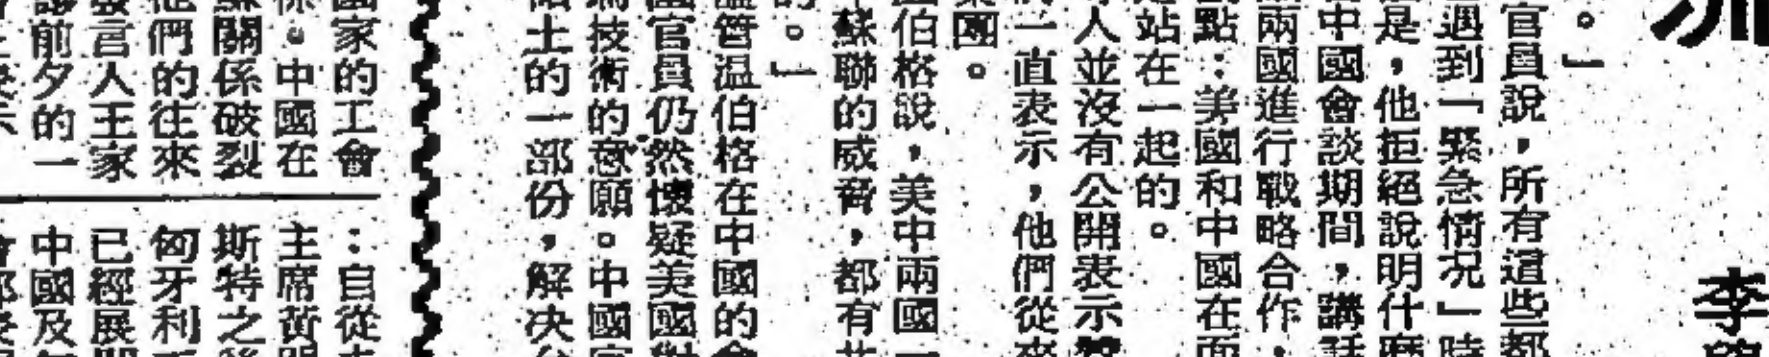 李
。」
官員說，所有這些都
遇到「緊急情况」時
是，他拒絕說明什麼
中國會談期間，講話
兩國進行戰略合作，
點：美國和中國在面
站在一起的。
人並沒有公開表示
一直表示，他們從來
集團。
伯格說，美中兩國一
蘇聯的威脅，都有共
的。」
溫管温伯格在中國的會
官員仍然懷疑美國對
技術的意願。中國官
土的一部份，解決台
國家的工會
係。中國在
蘇關係破裂
他們的往來
發言人王家
前夕的一
：自從
主席黃
斯特之後
匈牙利
已經展開
中國及